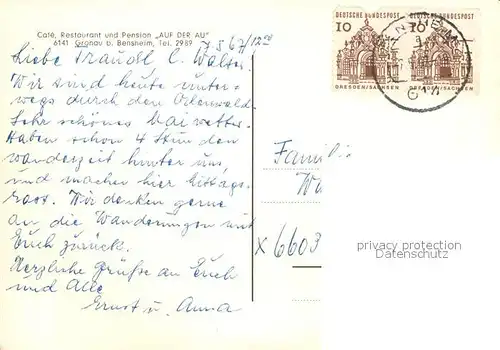 Café, Restaurant und Pension „AUF DER AU"
6141 Gronau b. Bensheim, Tel. 2989
7.5.67/12 00
Liebe Traudl l. Walter.
Wir sind heute unter-
wegs durch den Odenwald
Sehr schönes Maiwetter.
Haben schon 4 Stunden
wanderzeit hinter uns
und machen hier Mittags-
rast. Wir denken gerne
an die Wanderungen mit
Euch zurück.
Herzliche Grüße an Euch
und Alle
Ernst u. Anna
DEUTSCHE BUNDESPOST
10
DRESDEN/SACHSEN
DEUTSCHE BUNDESPOST
10
DRESDEN/SACHSEN
Famili
x 6603
privacy protection
Datenschutz